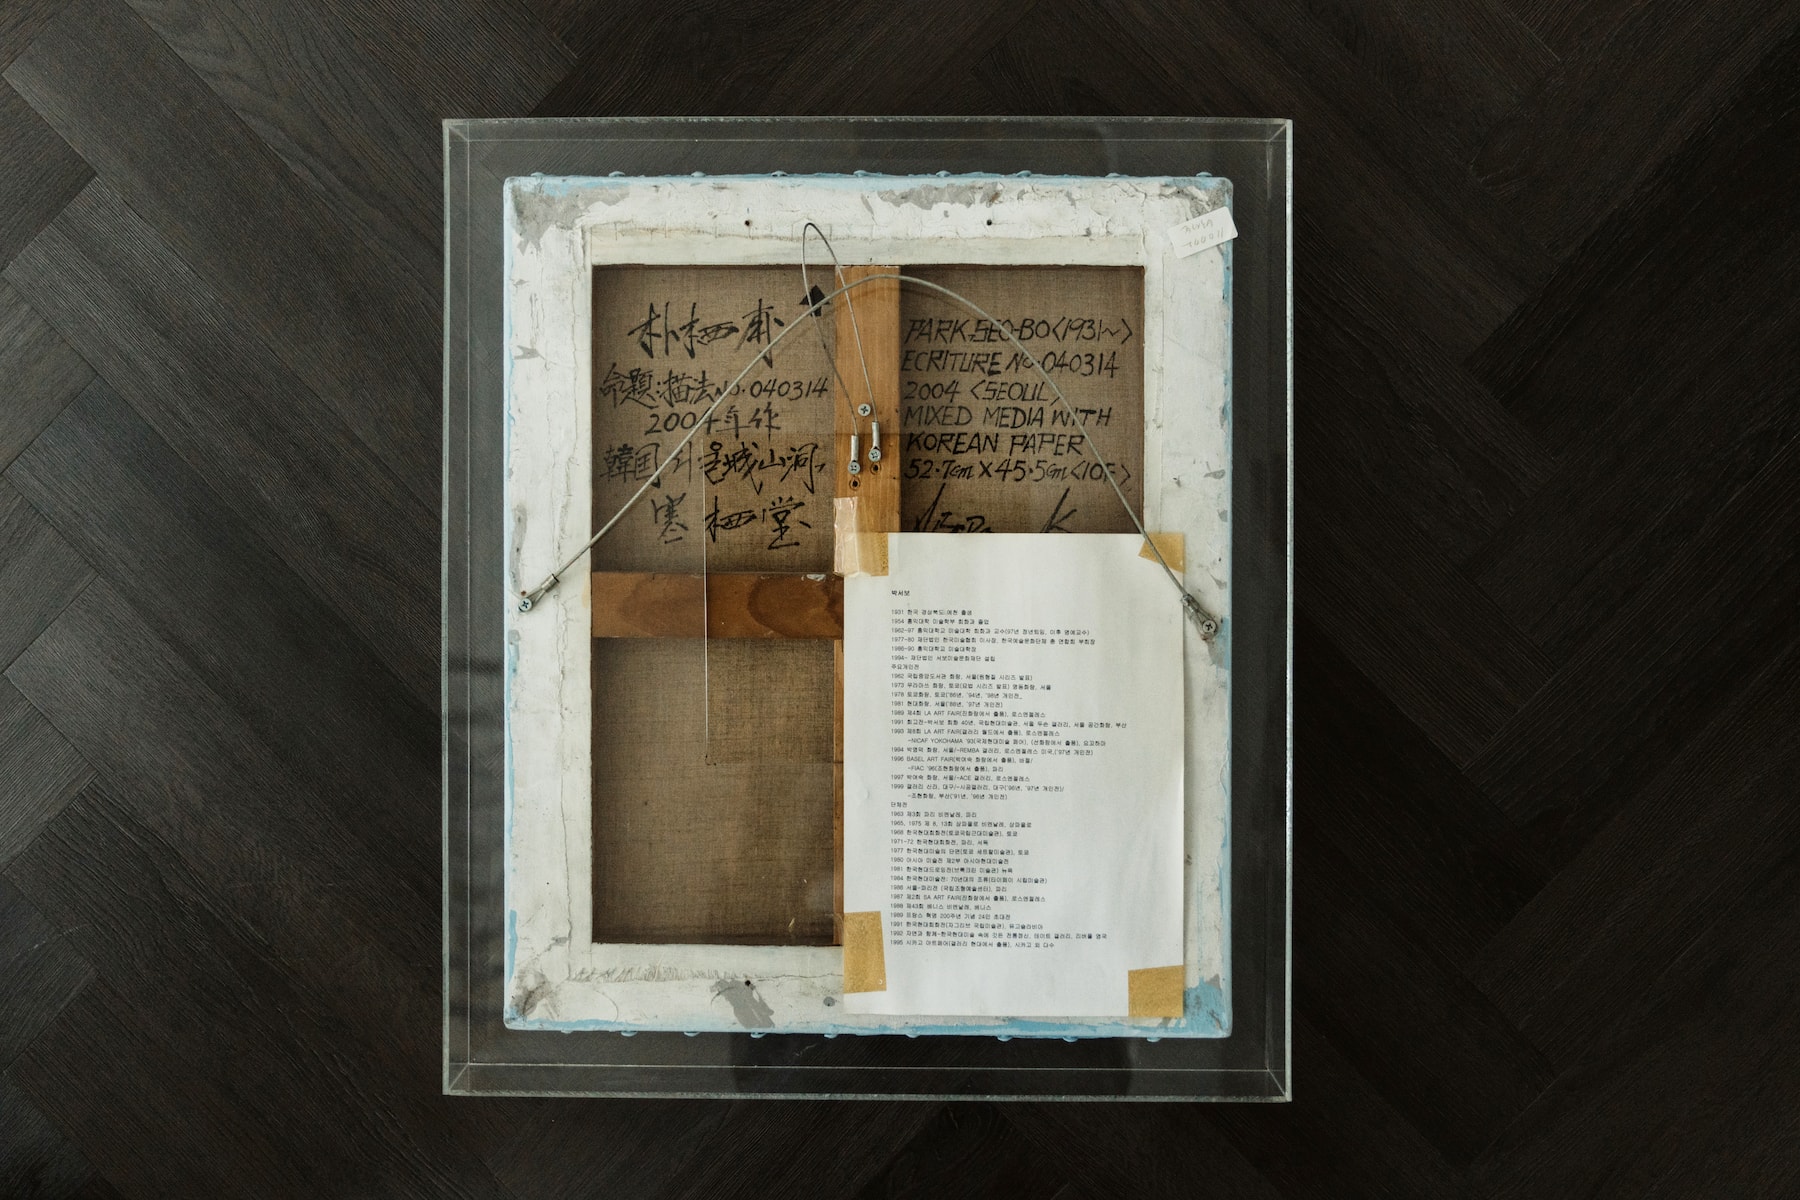 朴栖甫
命題:描法No.040314
2004年作
韓国 서울 城山洞
寒栖堂
PARK SEO-BO<1931~>
ECRITURE No.040314
2004 <SEOUL>
MIXED MEDIA WITH
KOREAN PAPER
52.7cm X 45.5cm <10F>
박서보
1931 한국 경상북도 예천 출생
1954 홍익대학 미술학부 회화과 졸업
1962-97 홍익대학교 미술대학 회화과 교수(97년 정년퇴임, 이후 명예교수)
1977-80 재단법인 한국미술협회 이사장, 한국예술문화단체 총 연합회 부회장
1986-90 홍익대학교 미술대학장
1994- 재단법인 서보미술문화재단 설립
주요개인전
1962 국립중앙도서관 화랑, 서울(원형질 시리즈 발표)
1973 무라마쓰 화랑, 토쿄(묘법 시리즈 발표) 명동화랑, 서울
1978 토쿄화랑, 토쿄('86년, '94년, '98년 개인전)
1981 현대화랑, 서울('88년, '97년 개인전)
1989 제4회 LA ART FAIR(진화랑에서 출품), 로스엔젤레스
1991 회고전-박서보 회화 40년, 국립현대미술관, 서울 두손 갤러리, 서울 공간화랑, 부산
1993 제8회 LA ART FAIR(갤러리 월드에서 출품), 로스엔젤레스
-NICAF YOKOHAMA '93(국제현대미술 페어), (선화랑에서 출품), 요꼬하마
1994 박영덕 화랑, 서울/-REMBA 갤러리, 로스엔젤레스 미국,('97년 개인전)
1996 BASEL ART FAIR(박여숙 화랑에서 출품), 바젤/
-FIAC '96(조현화랑에서 출품), 파리
1997 박여숙 화랑, 서울/-ACE 갤러리, 로스엔젤레스
1999 갤러리 신라, 대구/-시공갤러리, 대구('96년, '97년 개인전)/
-조현화랑, 부산('91년, '96년 개인전)
단체전
1963 제3회 파리 비엔날레, 파리
1965, 1975 제 8, 13회 상파울로 비엔날레, 상파울로
1968 한국현대회화전(토쿄국립근대미술관), 토쿄
1971-72 한국현대회화전, 파리, 서독
1977 한국현대미술의 단면(토쿄 세트랄미술관), 토쿄
1980 아시아 미술전 제2부 아시아현대미술전
1981 한국현대드로잉전(브룩크린 미술관) 뉴욕
1984 한국현대미술전: 70년대의 조류(타이페이 시립미술관)
1986 서울-파리전 (국립조형예술센터), 파리
1987 제2회 SA ART FAIR(진화랑에서 출품), 로스엔젤레스
1988 제43회 베니스 비엔날레, 베니스
1989 프랑스 혁명 200주년 기념 24인 초대전
1991 한국현대회화전(자그리브 국립미술관), 유고슬라비아
1992 자연과 함께-한국현대미술 속에 깃든 전통정신, 테이트 갤러리, 리버풀 영국
1995 시카고 아트페어(갤러리 현대에서 출품), 시카고 외 다수